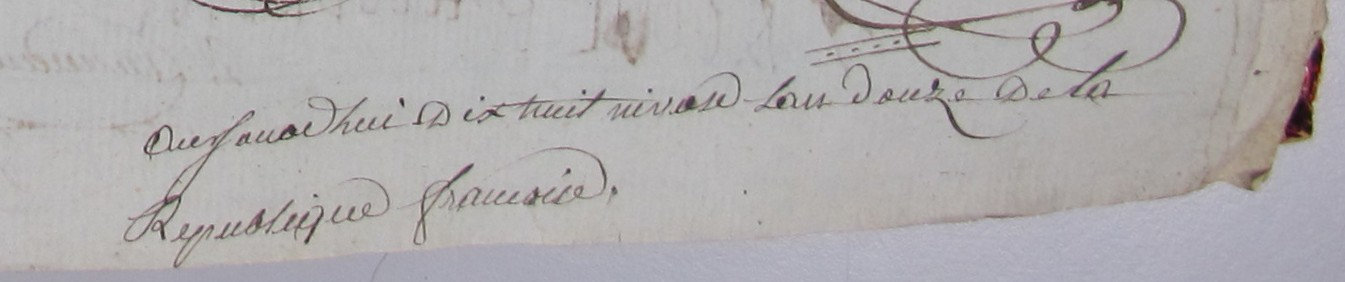 aujourdhui Dixhuit nivose lan douze de la
Republique francoise.